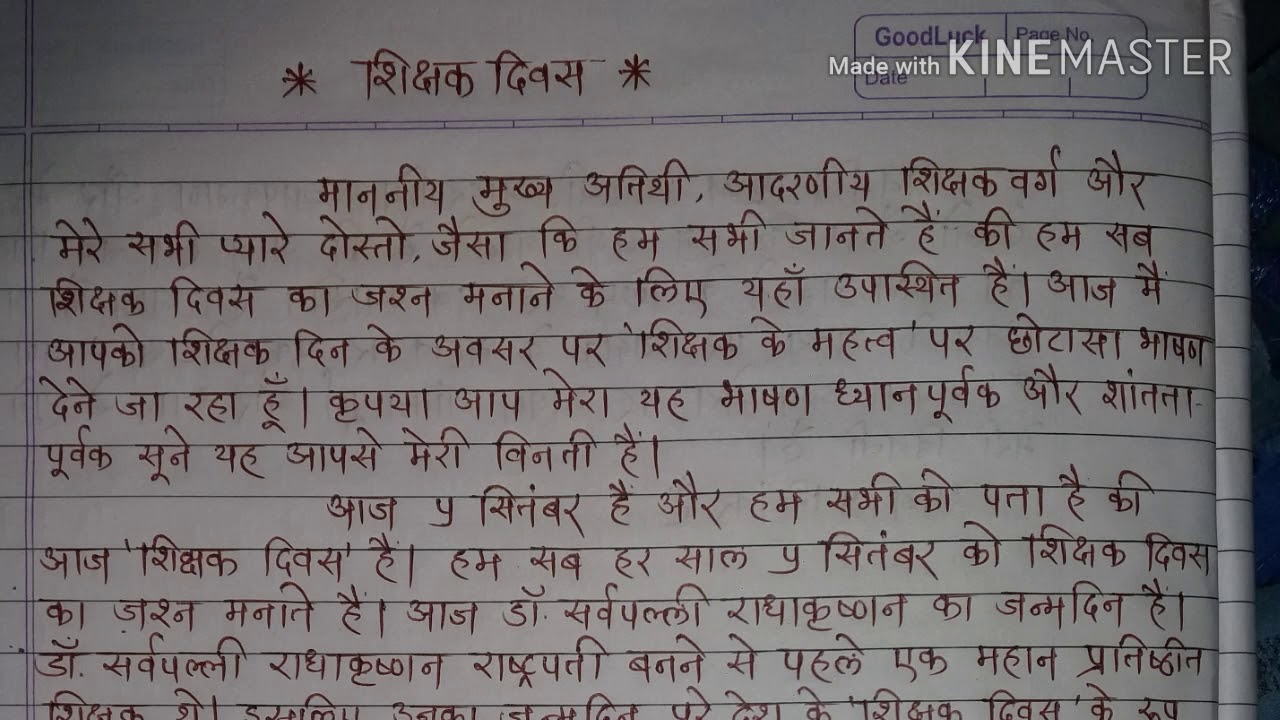 GoodLuck Page No.
Made with KINEMASTER
Date
* शिक्षक दिवस *
माननीय मुख्य अतिथी, आदरणीय शिक्षक वर्ग और
मेरे सभी प्यारे दोस्तो, जैसा कि हम सभी जानते हैं की हम सब
शिक्षक दिवस का जश्न मनाने के लिए यहाँ उपास्थित हैं। आज मैं
आपको शिक्षक दिन के अवसर पर 'शिक्षक के महत्व' पर छोटासा भाषण
देने जा रहा हूँ। कृपया आप मेरा यह भाषण ध्यानपूर्वक और शांतता-
पूर्वक सूने यह आपसे मेरी विनती हैं।
आज ५ सितंबर हैं और हम सभी को पता है की
आज 'शिक्षक दिवस' हैं। हम सब हर साल ५ सितंबर को शिक्षक दिवस
का ज़श्न मनाते हैं। आज डॉ. सर्वपल्ली राधाकृष्णन का जन्मदिन हैं।
डॉ. सर्वपल्ली राधाकृष्णन राष्ट्रपती बनने से पहले एक महान प्रतिष्ठीत
शिक्षक थे। इसलिए उनका जन्मदिन पुरे देश के 'शिक्षक दिवस' के रूप